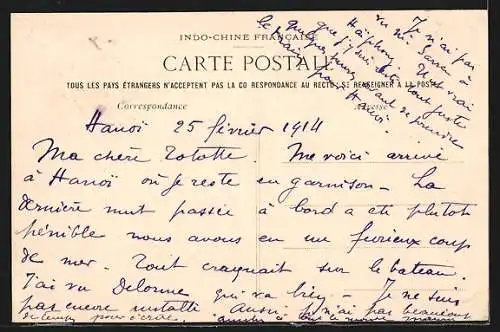 INDO-CHINE FRANÇAISE
CARTE POSTALE
TOUS LES PAYS ÉTRANGERS N'ACCEPTENT PAS LA CO RESPONDANCE AU RECTO, SE RENSEIGNER A LA POSTE
Correspondance Adresse
Hanoï 25 février 1914
Ma chère Tototte. Me voici arrivé
à Hanoï où je reste en garnison - La
dernière nuit passée à bord a été plutôt
pénible nous avons eu un furieux coup
de mer. Tout craquait sur le bateau.
J'ai vu Delorme qui va bien - Je ne suis
pas encore installé Aussi je n'ai pas beaucoup
de temps pour écrire.
Je n'ai pas
vu Mr
Haïphong. Il est vrai
que j'y suis resté tout juste
quelques heures avant de prendre
le train pour Hanoï.